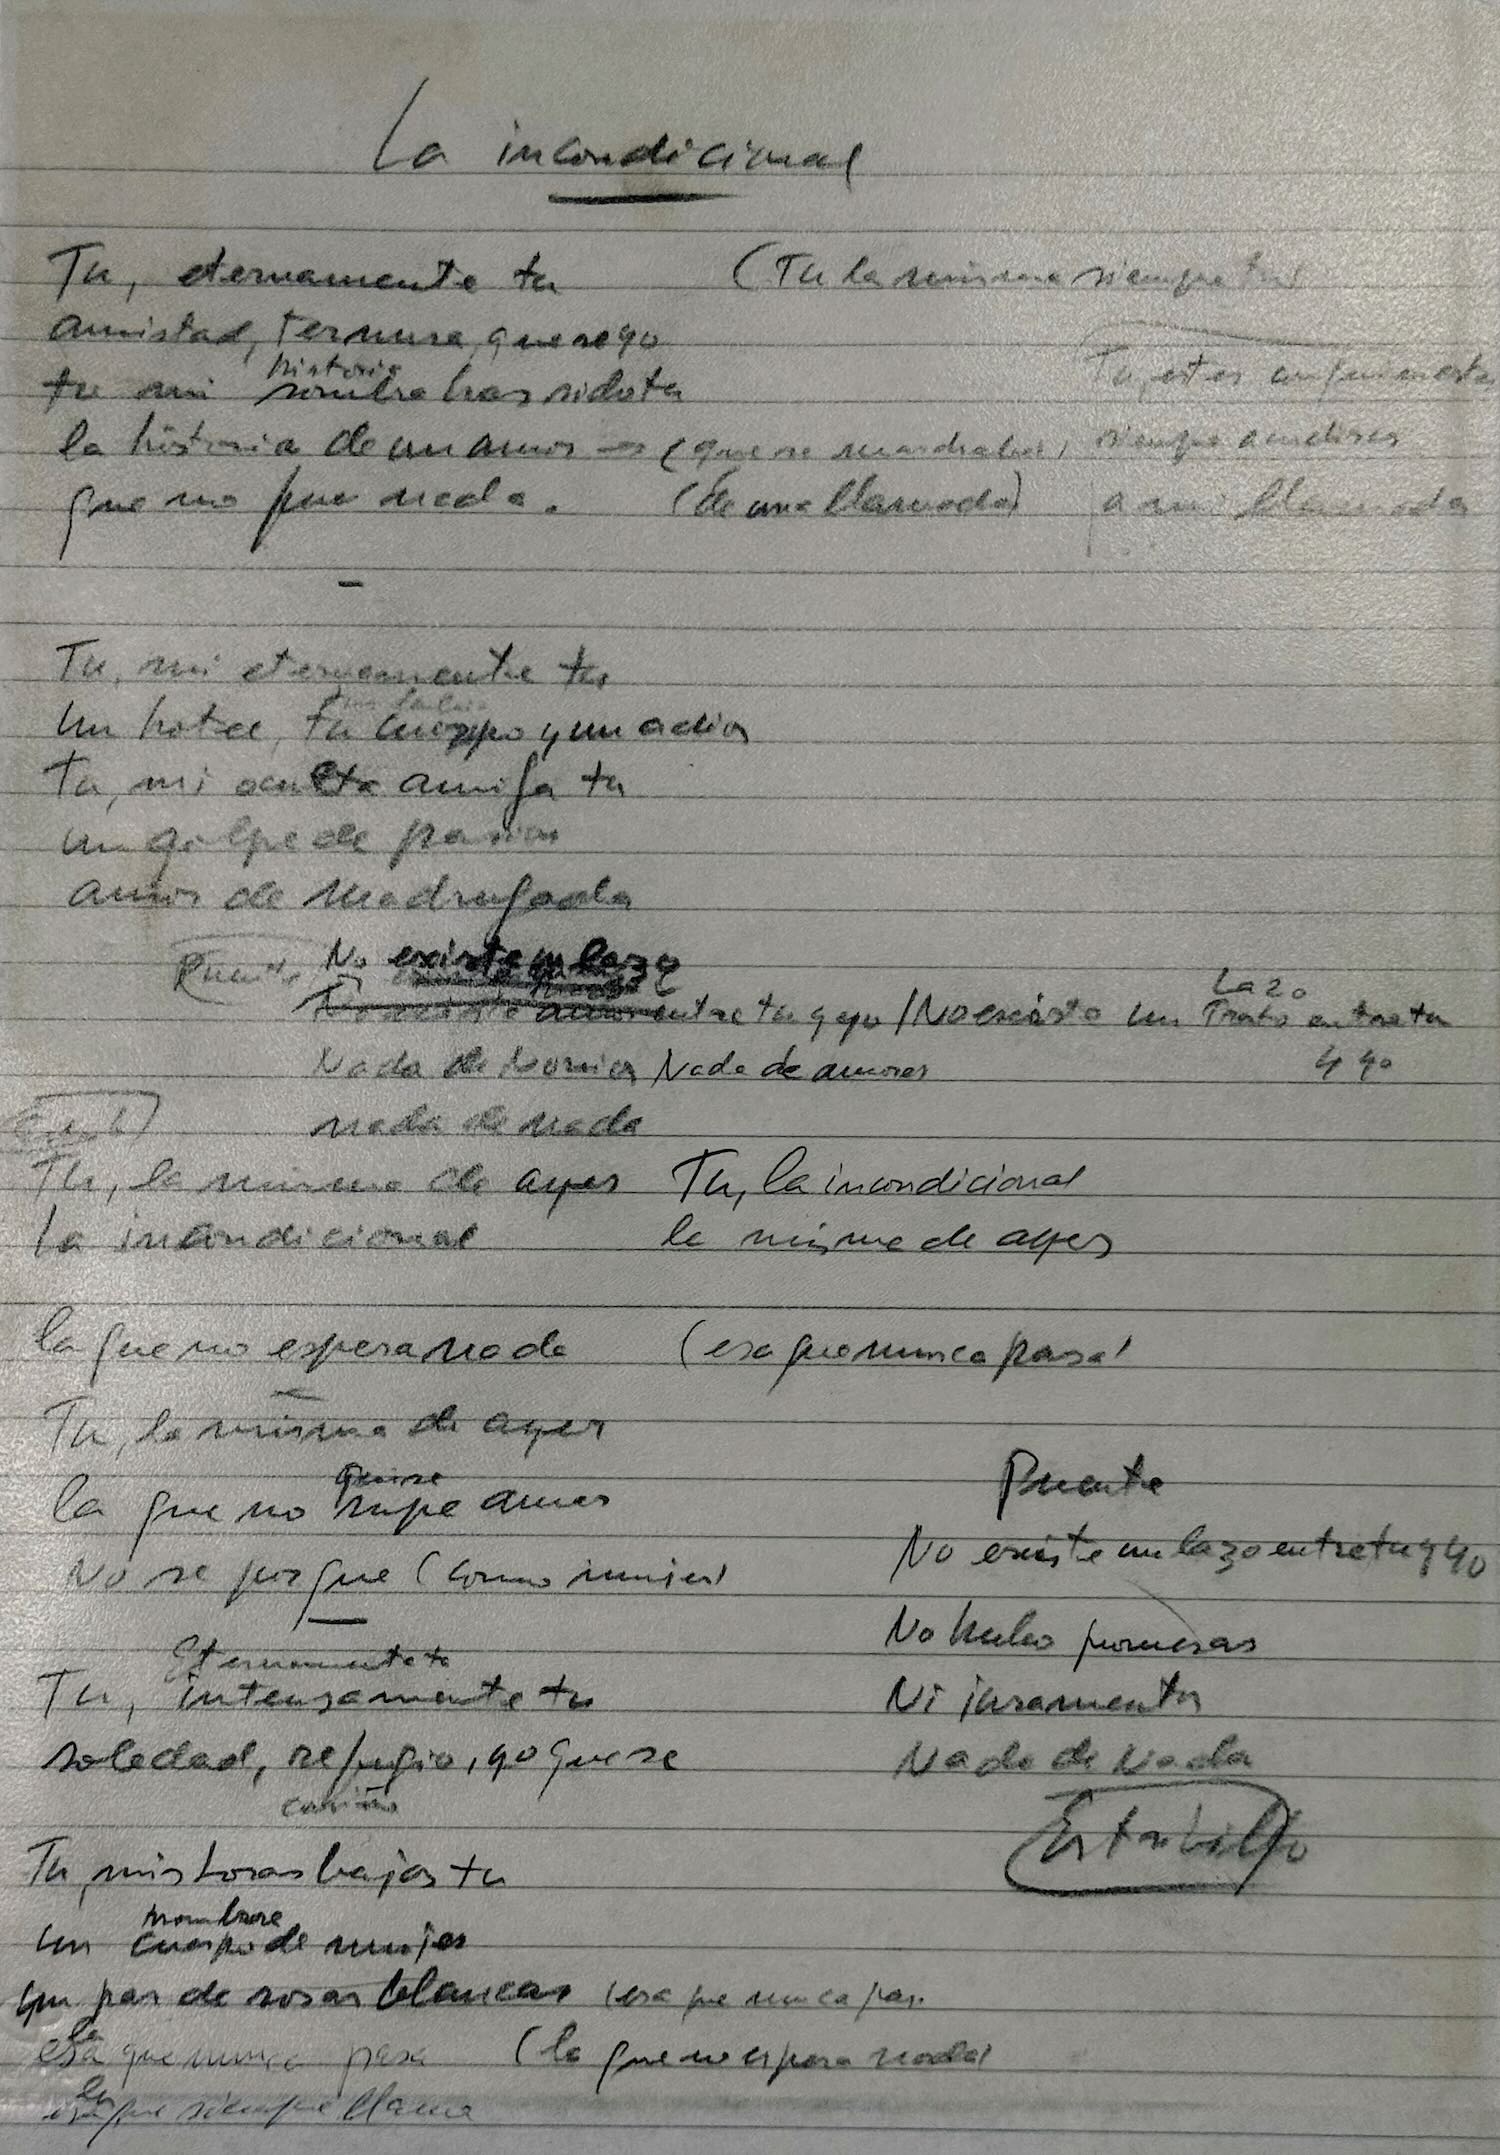 La incondicional
Tu, eternamente tu (Tu la misma siempre tu)
amistad, ternura, que se yo
historia
tu mi sombra has sido tu
Tu, estes
la historia de un amor → (que se
siempre acudiras
que no fue nada. (de una llamada) a mi llamada
Tu, mi eternamente tu
un hotel, tu cuerpo y un adios
Tu, mi oculta amiga tu
un golpe de pasion
amor de madrugada
Puente No existe un lazo
entre tu y yo / No existe un Trato entre tu
Lazo
y yo
Nada de Nada de amores
nada de nada
Tu, la misma de ayer Tu, la incondicional
la incondicional la misma de ayer
la que no espera nada (esa que nunca pasa)
Tu, la misma de ayer
quise
la que no supe amar
Puente
No se porque (como mujer)
No existe un lazo entre tu y yo
No hubo promesas
Eternamente tu
Tu, intensamente tu
Ni juramentos
soledad, refugio, yo que se
Nada de Nada
cariño
Estribillo
Tu, mis horas bajas tu
nombre
un cuerpo de mujer
un par de rosas blancas (esa que nunca pas.
la
esa que nunca pasa (la que no espera nada)
la
esa que siempre llama